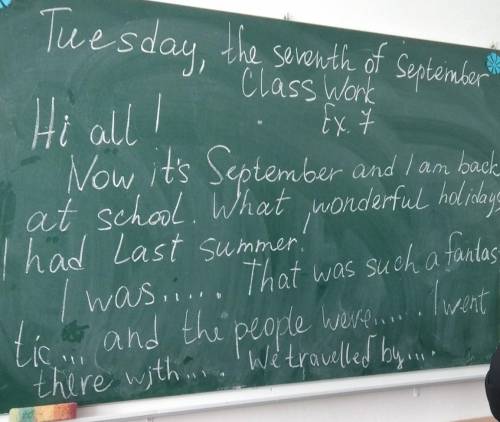 Tuesday, the seventh of September
Class Work
Ex. 7
Hi all!
Now it's September and I am back
at school. What wonderful holidays
I had Last summer.
I was..... That was such a fantas-
tic... and the people were...... I went
there with.... We travelled by....